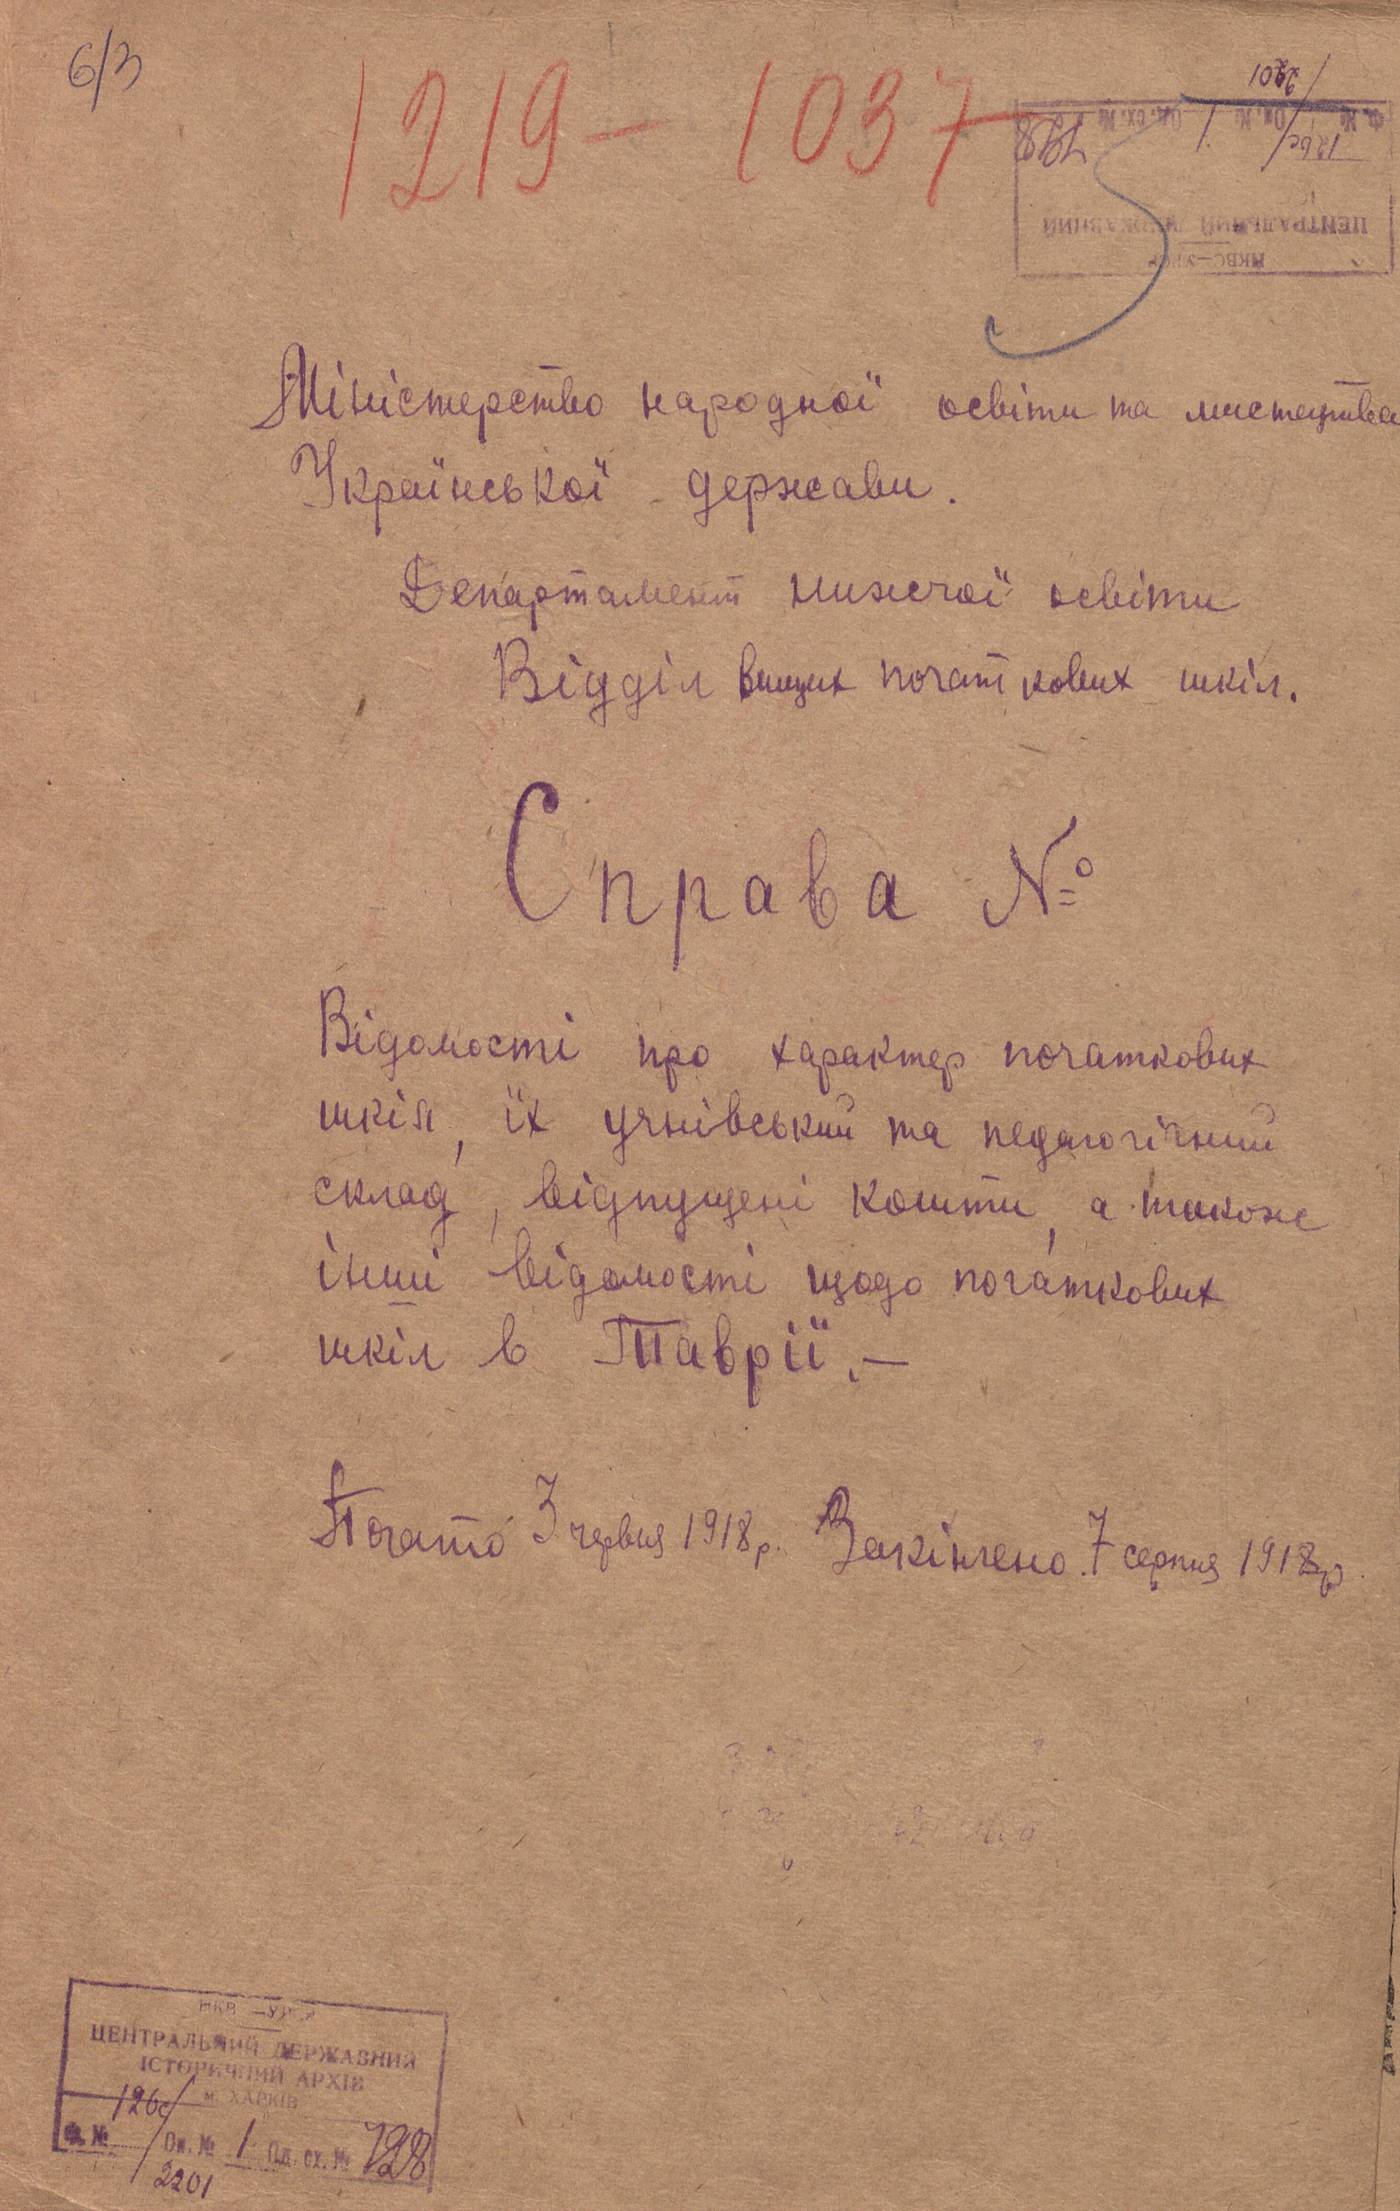 6/3
1219 - 1037
2201
126с / 1 728
Ф. № Оп. № Од. сх. №
ЦЕНТРАЛЬНИЙ ДЕРЖАВНИЙ
НКВС—УРСР
Міністерство народної освіти та мистецтва
Української держави.
Департамент нижчої освіти
Відділ вищих початкових шкіл.
Справа №
Відомості про характер початкових
шкіл, їх учнівський та педагогічний
склад, відпущені кошти, а також
інші відомості щодо початкових
шкіл в Таврії.—
Почато 3 червня 1918 р. Закінчено 7 серпня 1918 р.
НКВС—УРСР
ЦЕНТРАЛЬНИЙ ДЕРЖАВНИЙ
ІСТОРИЧНИЙ АРХІВ
м. ХАРКІВ
Ф. № 126с/2201 Оп. № 1 Од. сх. № 728